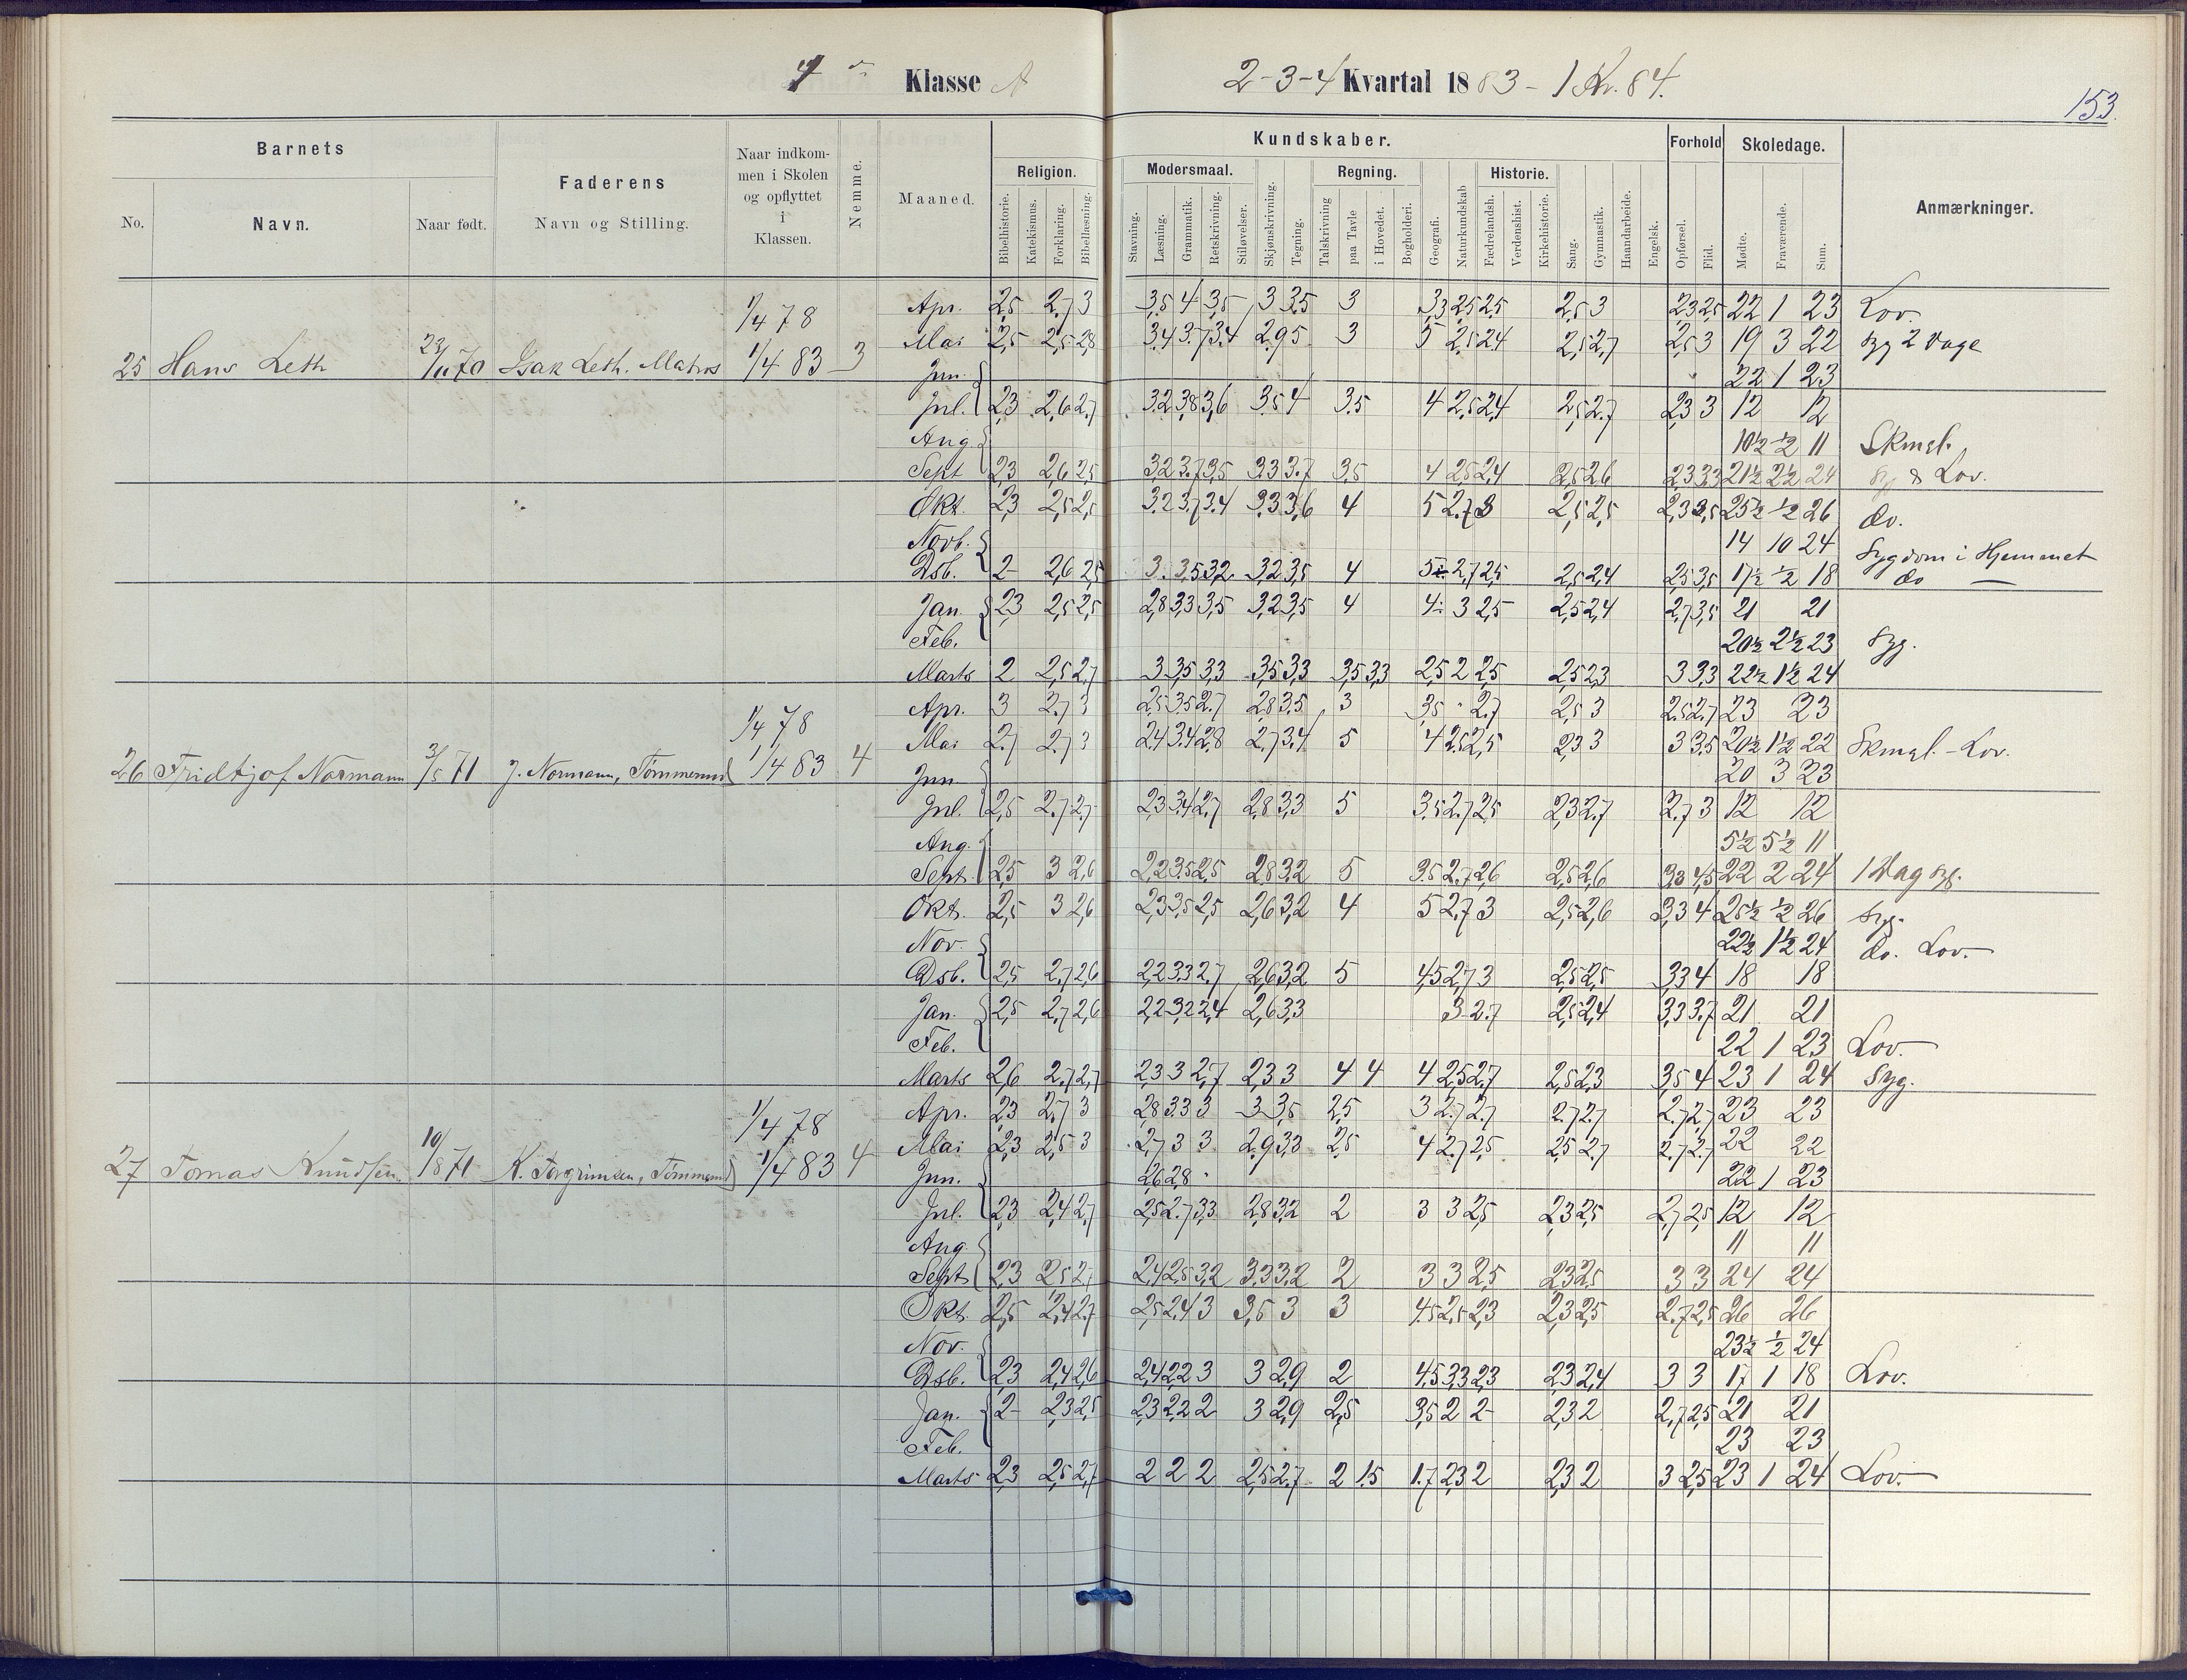 4de Klasse A
2-3-4 Kvartal 1883 - 1 Kv. 84.
153.
Barnets
No.
Navn.
Naar født.
Faderens
Navn og Stilling.
Naar indkom-
men i Skolen
og opflyttet
i
Klassen.
Nemme.
Maaned.
Kundskaber.
Religion.
Bibelhistorie.
Katekismus.
Forklaring.
Bibellæsning.
Modersmaal.
Stavning.
Læsning.
Grammatik.
Retskrivning.
Stiløvelser.
Skjønskrivning.
Tegning.
Regning.
Talskrivning
paa Tavle
i Hovedet.
Bogholderi.
Geografi.
Naturkundskab
Historie.
Fædrelandsh.
Verdenshist.
Kirkehistorie.
Sang.
Gymnastik.
Haandarbeide.
Engelsk.
Forhold
Opførsel.
Flid.
Skoledage.
Mødte.
Fraværende.
Sum.
Anmærkninger.
1/4 78
25 Hans Leth 23/11 70 Isak Leth. Matros 1/4 83 3
Apr. 2,5 2,7 3 3,5 4 3,5 3 3,5 3 3,3 2,5 2,5 2,5 3 2,3 2,5 22 1 23 Lov.
Mai 2,5 2,5 2,8 3,4 3,7 3,4 2,9 5 3 5 2,5 2,4 2,5 2,7 2,5 3 19 3 22 syg 2 Dage
Jun. 22 1 23
Jul. 2,3 2,6 2,7 3,2 3,8 3,6 3,5 4 3,5 4 2,5 2,4 2,5 2,7 2,3 3 12 12
Aug. 10½ ½ 11 Skmsl.
Sept 2,3 2,6 2,5 3,2 3,7 3,5 3,3 3,7 3,5 4 2,5 2,4 2,5 2,6 2,3 3,3 21½ 2½ 24 Syg & Lov.
Okt. 2,3 2,5 2,5 3,2 3,7 3,4 3,3 3,6 4 5 2,7 3 2,5 2,5 2,3 3,5 25½ ½ 26 do.
Novb. 14 10 24 Sygdom i Hjemmet
Dsb. 2 2,6 2,5 3. 3,5 3,2 3,2 3,5 4 5 2,7 2,5 2,5 2,4 2,5 3,5 17½ ½ 18 do —
Jan. 2,3 2,5 2,5 2,8 3,3 3,5 3,2 3,5 4 4÷ 3 2,5 2,5 2,4 2,7 3,5 21 21
Feb. 20½ 2½ 23 Syg.
Marts 2 2,5 2,7 3 3,5 3,3 3,5 3,3 3,5 3,3 2,5 2 2,5 2,5 2,3 3 3,3 22½ 1½ 24
1/4 78
26 Fridtjof Normann 3/5 71 J. Normann, Tømmermd 1/4 83 4
Apr. 3 2,7 3 2,5 3,5 2,7 2,8 3,5 3 3,5 " 2,7 2,5 3 2,5 2,7 23 23
Mai 2,7 2,7 3 2,4 3,4 2,8 2,7 3,4 5 4 2,5 2,5 2,3 3 3 3,5 20½ 1½ 22 Skmsl. - Lov.
Jun 20 3 23
Jul. 2,5 2,7 2,7 2,3 3,4 2,7 2,8 3,3 5 3,5 2,7 2,5 2,3 2,7 2,7 3 12 12
Aug. 5½ 5½ 11
Sept. 2,5 3 2,6 2,2 3,5 2,5 2,8 3,2 5 3,5 2,7 2,6 2,5 2,6 3,3 4,5 22 2 24 1 Dag syg.
Okt. 2,5 3 2,6 2,3 3,5 2,5 2,6 3,2 4 5 2,7 3 2,5 2,6 3,3 4 25½ ½ 26 Syg.
Nov. 22½ 1½ 24 do. Lov.
Dsb. 2,5 2,7 2,6 2,2 3,3 2,7 2,6 3,2 5 4,5 2,7 3 2,5 2,5 3,3 4 18 18
Jan. 2,5 2,7 2,6 2,2 3,2 2,4 2,6 3,3 3 2,7 2,5 2,4 3,3 3,7 21 21
Feb. 22 1 23 Lov.
Marts 2,6 2,7 2,7 2,3 3 2,7 2,3 3 4 4 4 2,5 2,7 2,5 2,3 3,5 4 23 1 24 Syg.
1/4 78
27 Tomas Knudsen. 10/8 71 K. Torgrimsen, Tømmermd 1/4 83 4
Apr. 2,3 2,7 3 2,8 3,3 3 3 3,5 2,5 3 2,7 2,7 2,7 2,7 2,7 2,7 23 23
Mai 2,3 2,5 3 2,7 3 3 2,9 3,3 2,5 4 2,7 2,5 2,5 2,7 2,7 2,7 22 22
Jun. 2,6 2,8 " 22 1 23
Jul. 2,3 2,4 2,7 2,5 2,7 3,3 2,8 3,2 2 3 3 2,5 2,3 2,5 2,7 2,5 12 12
Aug. 11 11
Sept 2,3 2,5 2,7 2,4 2,5 3,2 3,3 3,2 2 3 3 2,5 2,3 2,5 3 3 24 24
Okt. 2,5 2,4 2,7 2,5 2,4 3 3,5 3 3 4,5 2,5 2,3 2,3 2,5 2,7 2,5 26 26
Nov. 23½ ½ 24
Dsb. 2,3 2,4 2,6 2,4 2,2 3 3 2,9 2 4,5 3,3 2,3 2,3 2,4 3 3 17 1 18 Lov.
Jan. 2- 2,3 2,5 2,3 2,2 2 3 2,9 2,5 3,5 2 2- 2,3 2 2,7 2,5 21 21
Feb. 23 23
Marts 2,3 2,5 2,7 2 2 2 2,5 2,7 2 1.5 1.7 2,3 2 2,3 2 3 2,5 23 1 24 Lov.